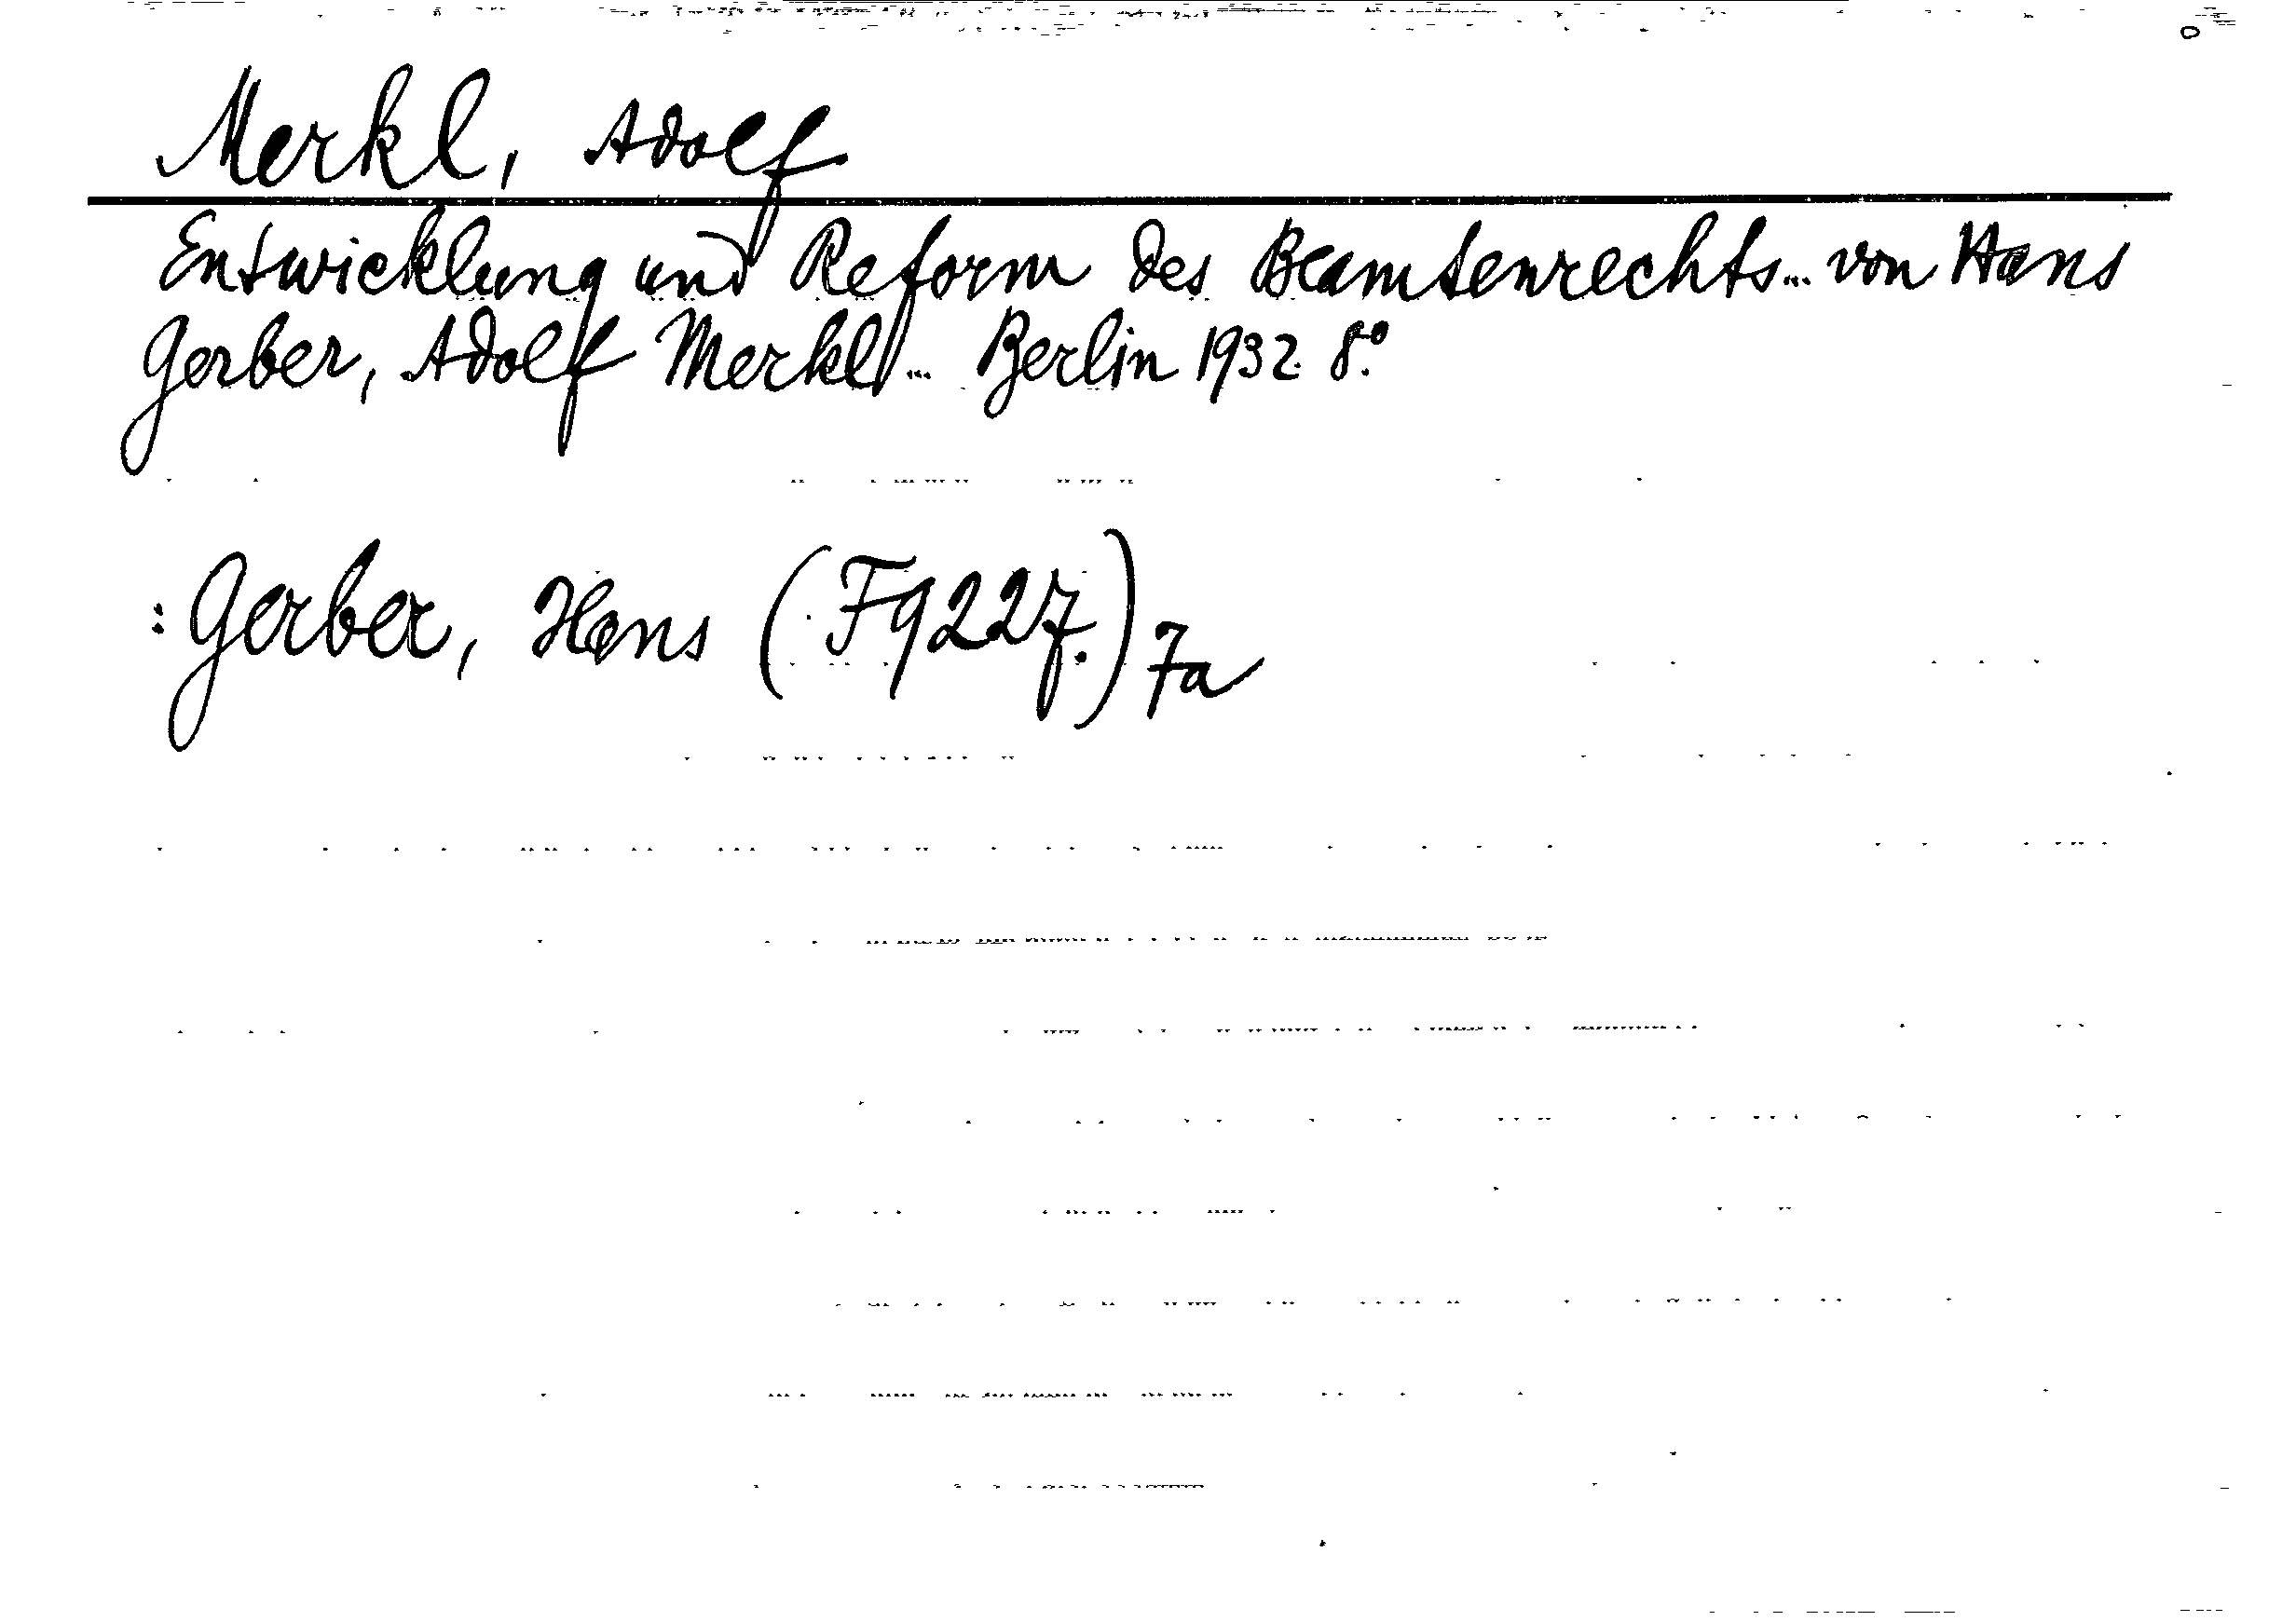 Merkl, Adolf
Entwicklung und Reform des Beamtenrechts... von Hans
Gerber, Adolf Merkl... Berlin 1932. 8.°
: Gerber, Hans (F9227.) 7a